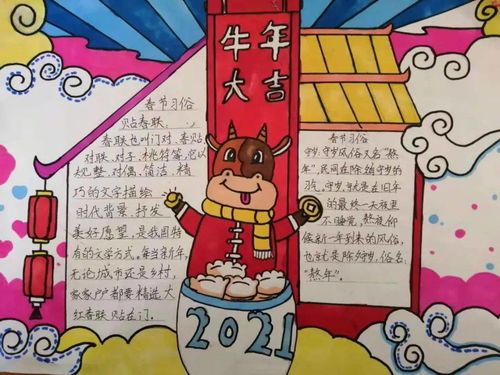 牛年
大吉
春节习俗
贴春联
春联也叫门对、春贴
对联、对子、桃符等,它以
工整、对偶、简洁、精
巧的文字描绘
时代背景,抒发
美好愿望,是我国特
有的文学方式。每当新年,
无论城市还是乡村,
家家户户都要精选大
红春联贴在门。
春节习俗
守岁:守岁风俗又名“熬
年”,民间在除夕有守岁的
习气,守岁,就是在旧年
的最终一天夜里
不睡觉,熬夜仰
候新一年到来的风俗,
也就是除夕守岁,俗名
“熬年”。
2021